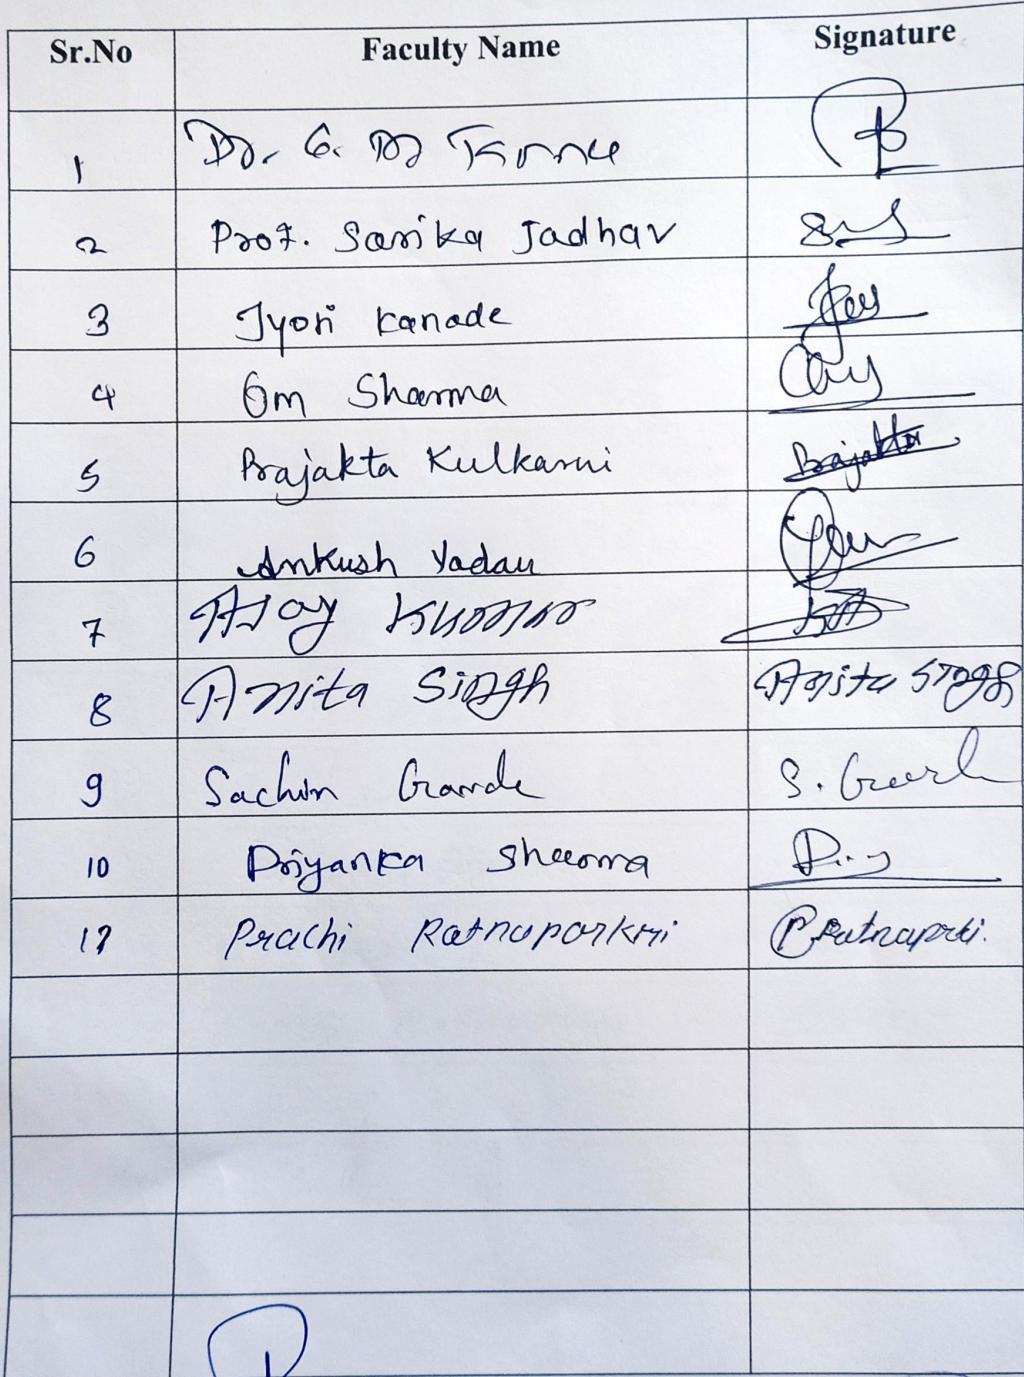 Sr.No Faculty Name Signature
1 Dr. G.
2 Prof. Sarika Jadhav
3 Jyoti Kanade
4 Om Sharma
5 Prajakta Kulkarni Prajakta
6 Ankush Yadav
7 Ajay Kumar
8 Anita Singh Anita Singh
9 Sachin S.
10 Priyanka Sharma
Prachi Ratnaparkhi